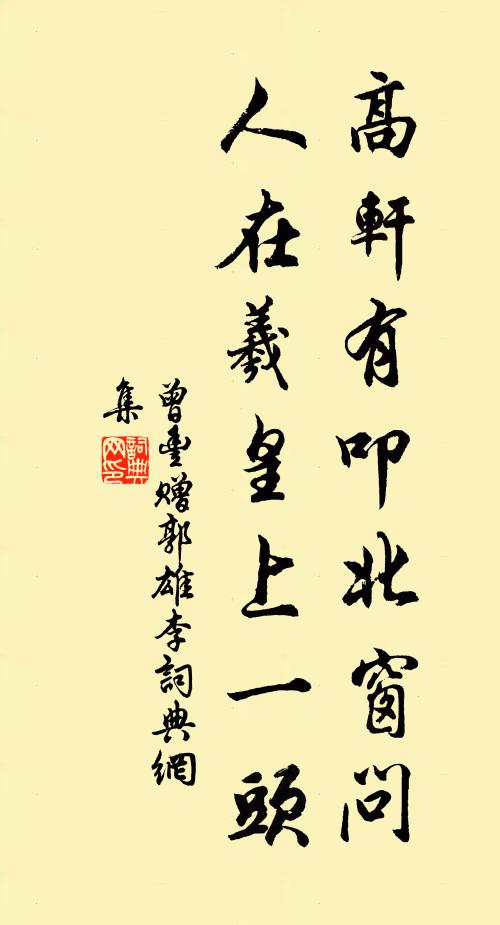 高軒有叩北窗問
人在羲皇上一頭
曾豐贈郭雄李詞典網
集
詞典
网印